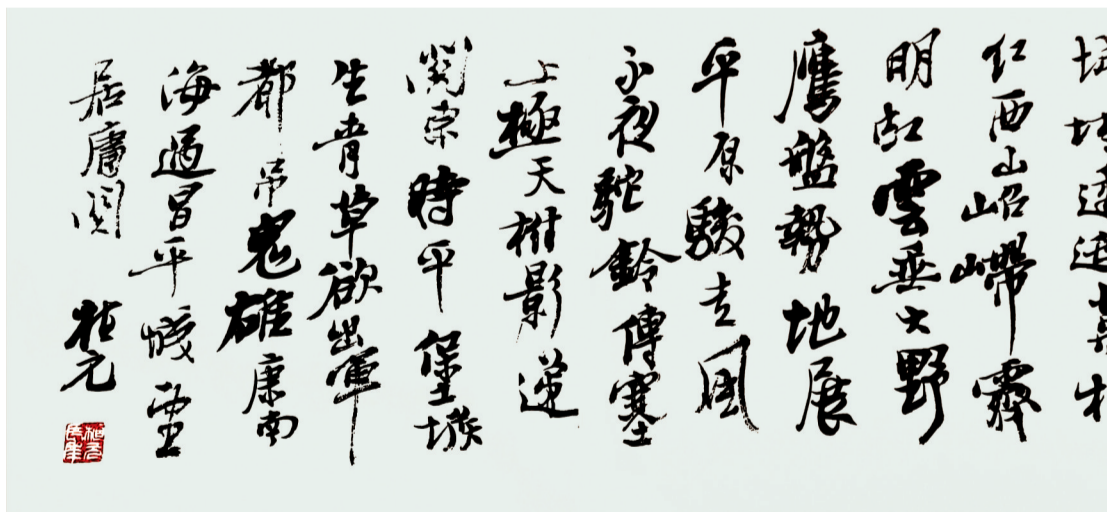 紅西山岧嵽霽
明虹雲垂大野
鷹盤勢地展
平原駿走風
永夜駝鈴傳塞
上極天樹影遞
關東時平堡堠
生青草欲出軍
都吊鬼雄康南
海過昌平城望
居庸關